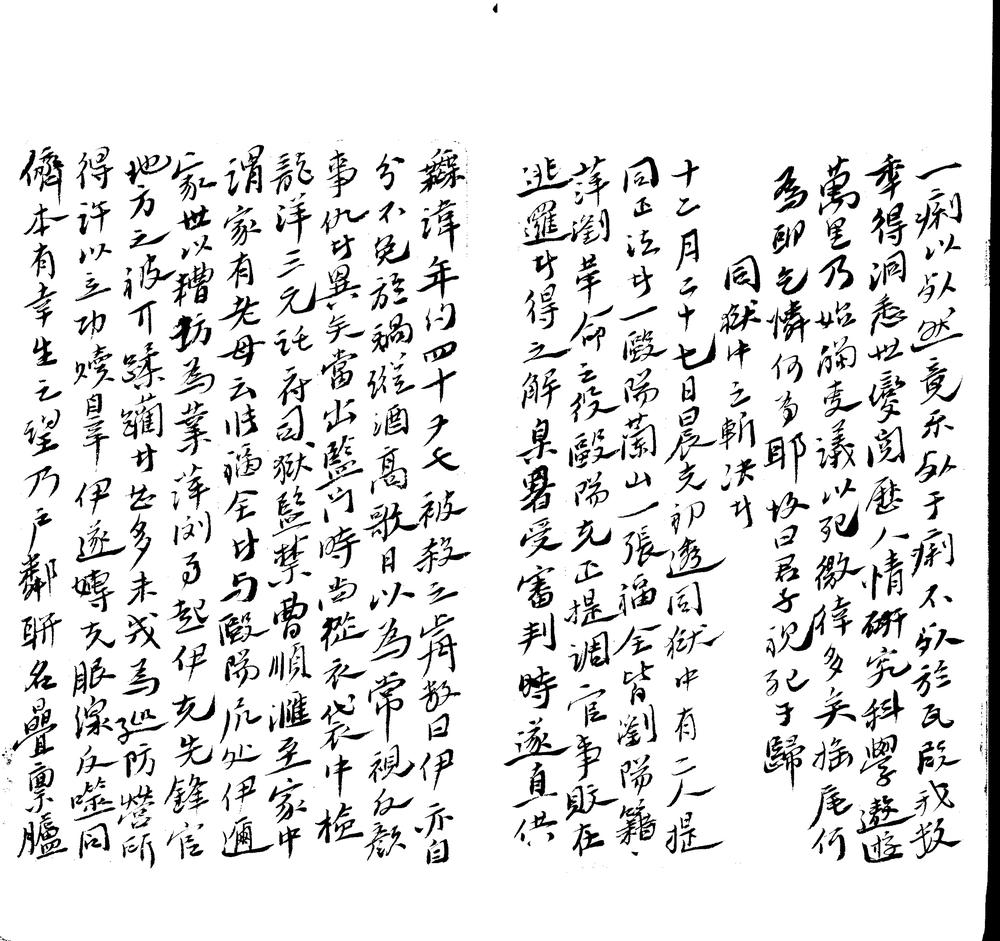 一痢以死然竟不死于痢不死於瓦啟我數
年得洞悉世變閱歷人情研究科學遨遊
萬里乃始獮更議以死徼倖多矣搖尾何
為即乞憐何為耶故曰君子視死于歸
同獄中之斬決者
十二月二十七日晨天初透同獄中有二人提
同正法者一歐陽蘭山一張福全皆瀏陽籍
萍瀏革命之役歐陽充正提調官事敗在
逃邏者得之解臬署受審判時遂直供
不諱年約四十夕七被殺之前數日伊亦自
分不免於禍縱酒高歌日以為常視反顏
事仇者異矣當出監門時尚從衣袋中檢
龍洋三元託府司獄監禁曹順滙至家中
謂家有老母云張福全者与歐陽居处伊邇
家世以糟坊為業萍瀏事起伊充先鋒官
地方之被蹂躪者甚多未幾為巡防營所
得許以立功贖罪伊遂轉充眼線反噬同
儕本有幸生之望乃戶鄰聯名疊稟臚